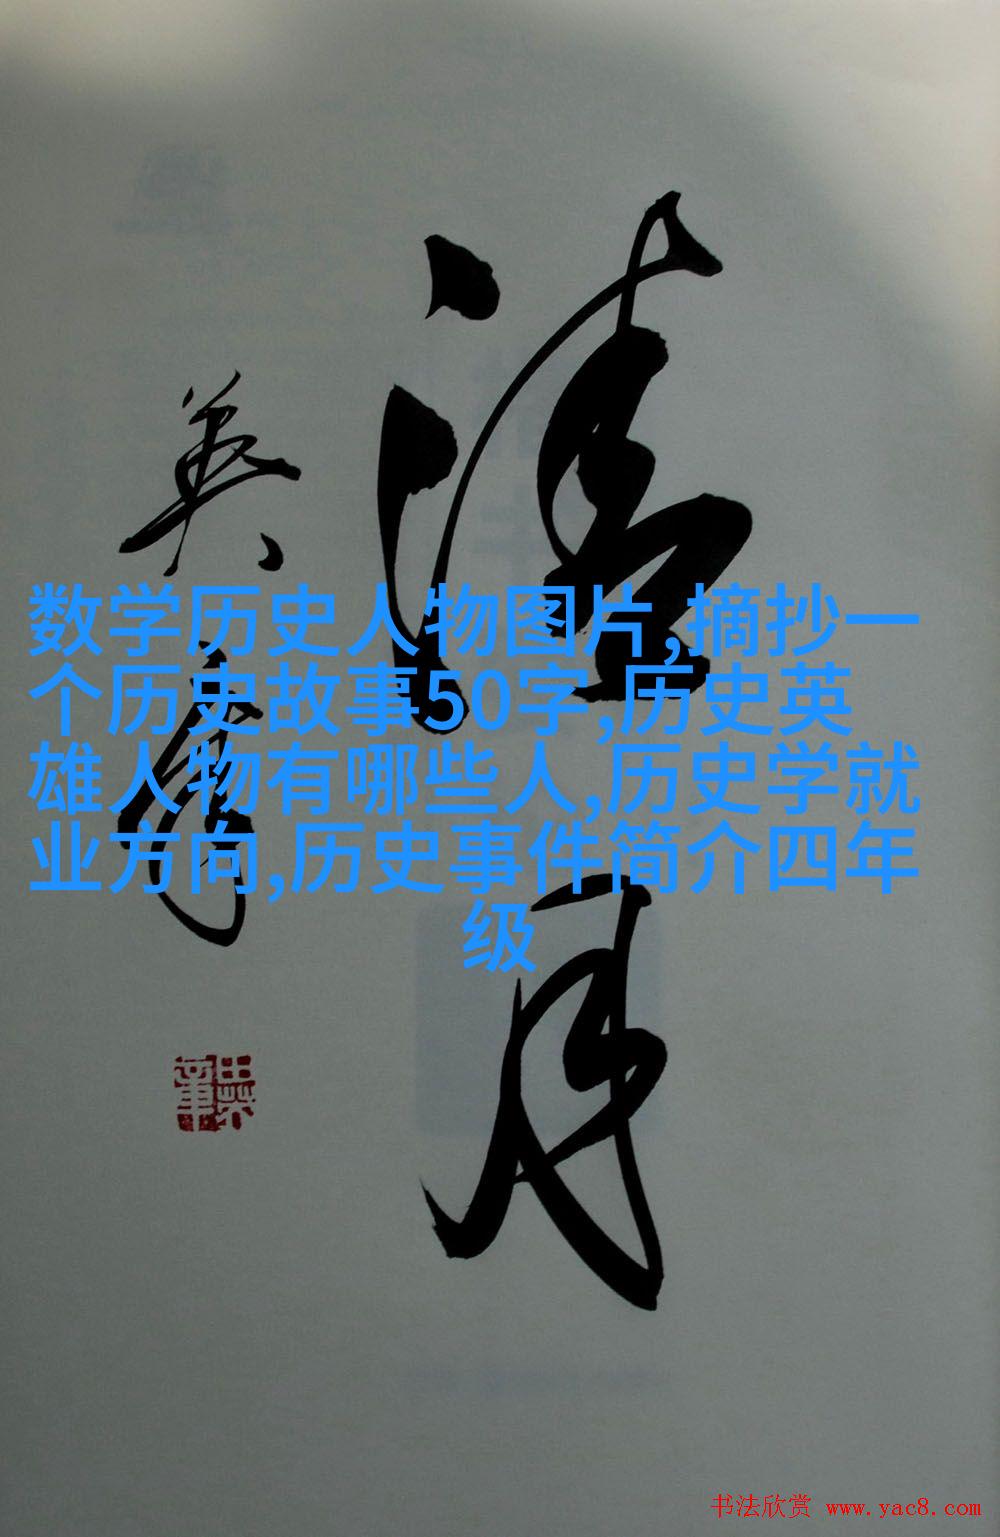 清月
英章
数学历史人物图片,摘抄一
个历史故事50字,历史英
雄人物有哪些人,历史学就
业方向,历史事件简介四年
级
书法欣赏 www.yac8.com